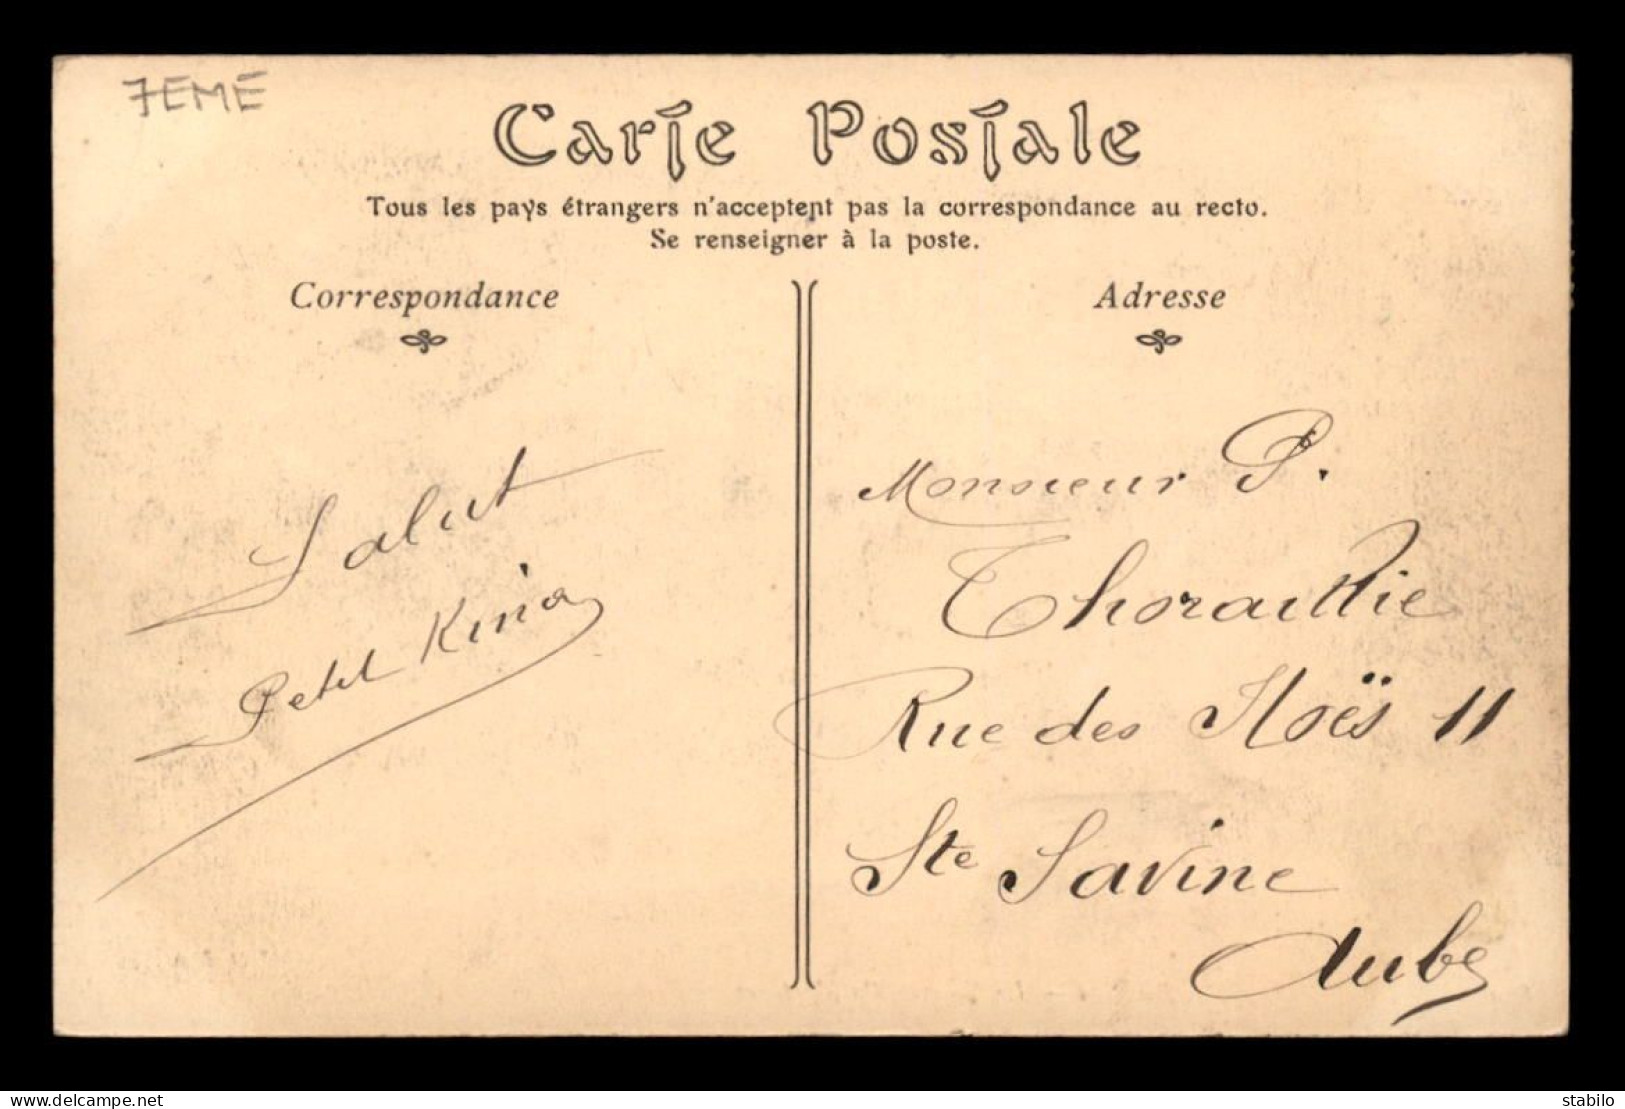 7EME
Carte Postale
Tous les pays étrangers n'acceptent pas la correspondance au recto.
Se renseigner à la poste.
Correspondance
Adresse
Salut
Petit Kina
Monsieur P.
Thoraillie
Rue des Noës 11
Ste Savine
Aube
www.delcampe.net
stabilo